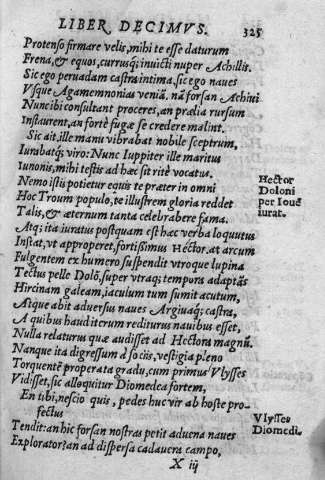 LIBER DECIMVS. 325
Protenso firmare velis, mihi te esse daturum
Frena, & equos, currusq; inuicti nuper Achillis.
Sic ego peruadam castra intima, sic ego naues
Vsque Agamemnonias veniã. nã forsan Achiui
Nunc ibi consultant proceres, an prælia rursum
Instaurent, an fortè fugæ se credere malint.
Sic ait, ille manu vibrabat nobile sceptrum,
Iurabatq; viro: Nunc Iuppiter ille maritus
Iunonis, mihi testis ad hæc sit ritè vocatus.
Nemo istis potietur equis te præter in omni
Hoc Troum populo, te illustrem gloria reddet
Talis, & æternum tanta celebrabere fama.
Hector
Doloni
per Iouẽ
iurat.
Atq; ita iuratus postquam est hæc verba loquutus
Instat, vt approperet, fortissimus Hector. at arcum
Fulgentem ex humero suspendit vtroque lupina
Tectus pelle Dolõ, super vtraq; tempora adaptãs
Hircinam galeam, iaculum tum sumit acutum,
Atque abit aduersus naues Argiuaq; castra,
A quibus haud iterum rediturus nauibus esset,
Nulla relaturus quæ audisset ad Hectora magnũ.
Nanque ita digressum à sociis, vestigia pleno
Torquentẽ properata gradu, cum primus Vlysses
Vidisset, sic alloquitur Diomedea fortem,
En tibi, nescio quis, pedes huc vir ab hoste pro-
fectus
Tendit: an hic forsan nostras petit aduena naues
Explorator? an ad dispersa cadauera campo,
Vlysses
Diomedi.
X iij